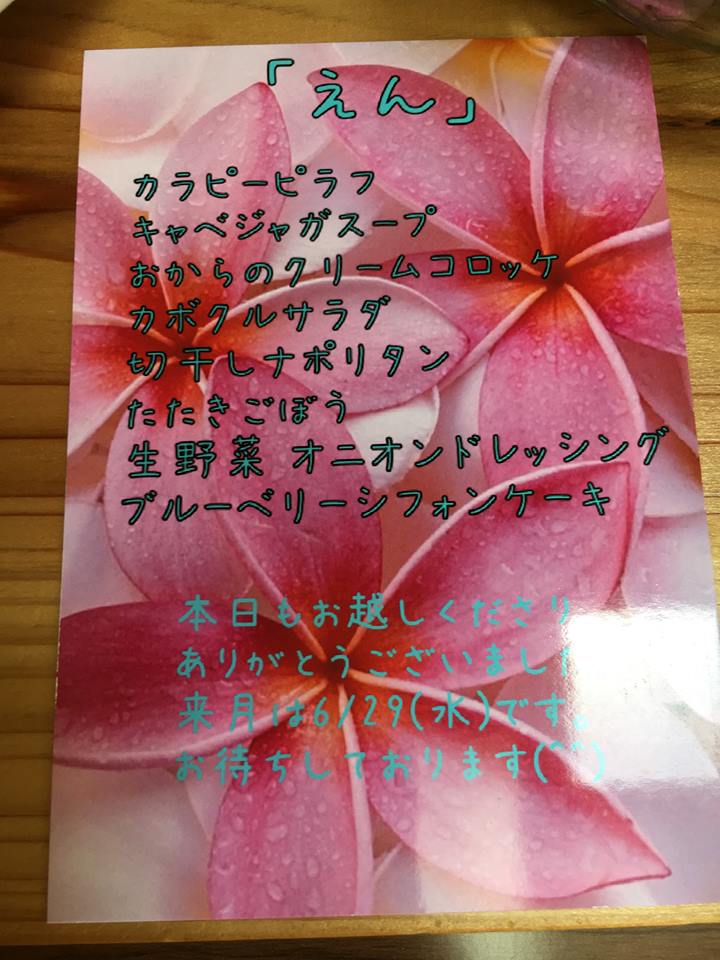 「えん」
カラピーピラフ
キャベジャガスープ
おからのクリームコロッケ
カボクルサラダ
切干しナポリタン
たたきごぼう
生野菜 オニオンドレッシング
ブルーベリーシフォンケーキ
本日もお越しくださり
ありがとうございました
来月は6/29(水)です。
お待ちしております(^^)